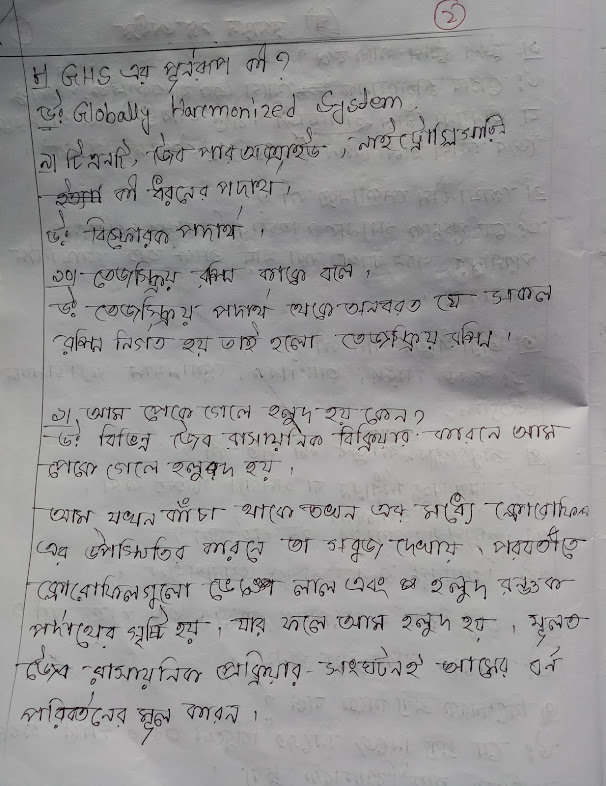 ২
৮। GHS এর পূর্ণরূপ কী?
উঃ Globally Harmonized System.
৯। টিএনটি, জৈব পার অক্সাইড, নাইট্রোগ্লিসারিন
কী ধরনের পদার্থ।
উঃ বিস্ফোরক পদার্থ।
১০। তেজস্ক্রিয় রশ্মি কাকে বলে।
উঃ তেজস্ক্রিয় পদার্থ থেকে অনবরত যে সকল
রশ্মি নির্গত হয় তাই হলো তেজস্ক্রিয় রশ্মি।
১। আম পেকে গেলে হলুদ হয় কেন?
উঃ বিভিন্ন জৈব রাসায়নিক বিক্রিয়ার কারনে আম
পেকে গেলে হলুদ হয়।
আম যখন কাঁচা থাকে তখন এর মধ্যে ক্লোরোফিল
এর উপস্থিতির কারনে তা সবুজ দেখায়, পরবর্তীতে
ক্লোরোফিলগুলো ভেঙ্গে লাল এবং হলুদ রন্জক
পদার্থের সৃষ্টি হয়, যার ফলে আম হলুদ হয়, মূলত
জৈব রাসায়নিক প্রক্রিয়ার সংঘটনই আমের বর্ন
পরিবর্তনের মূল কারন।